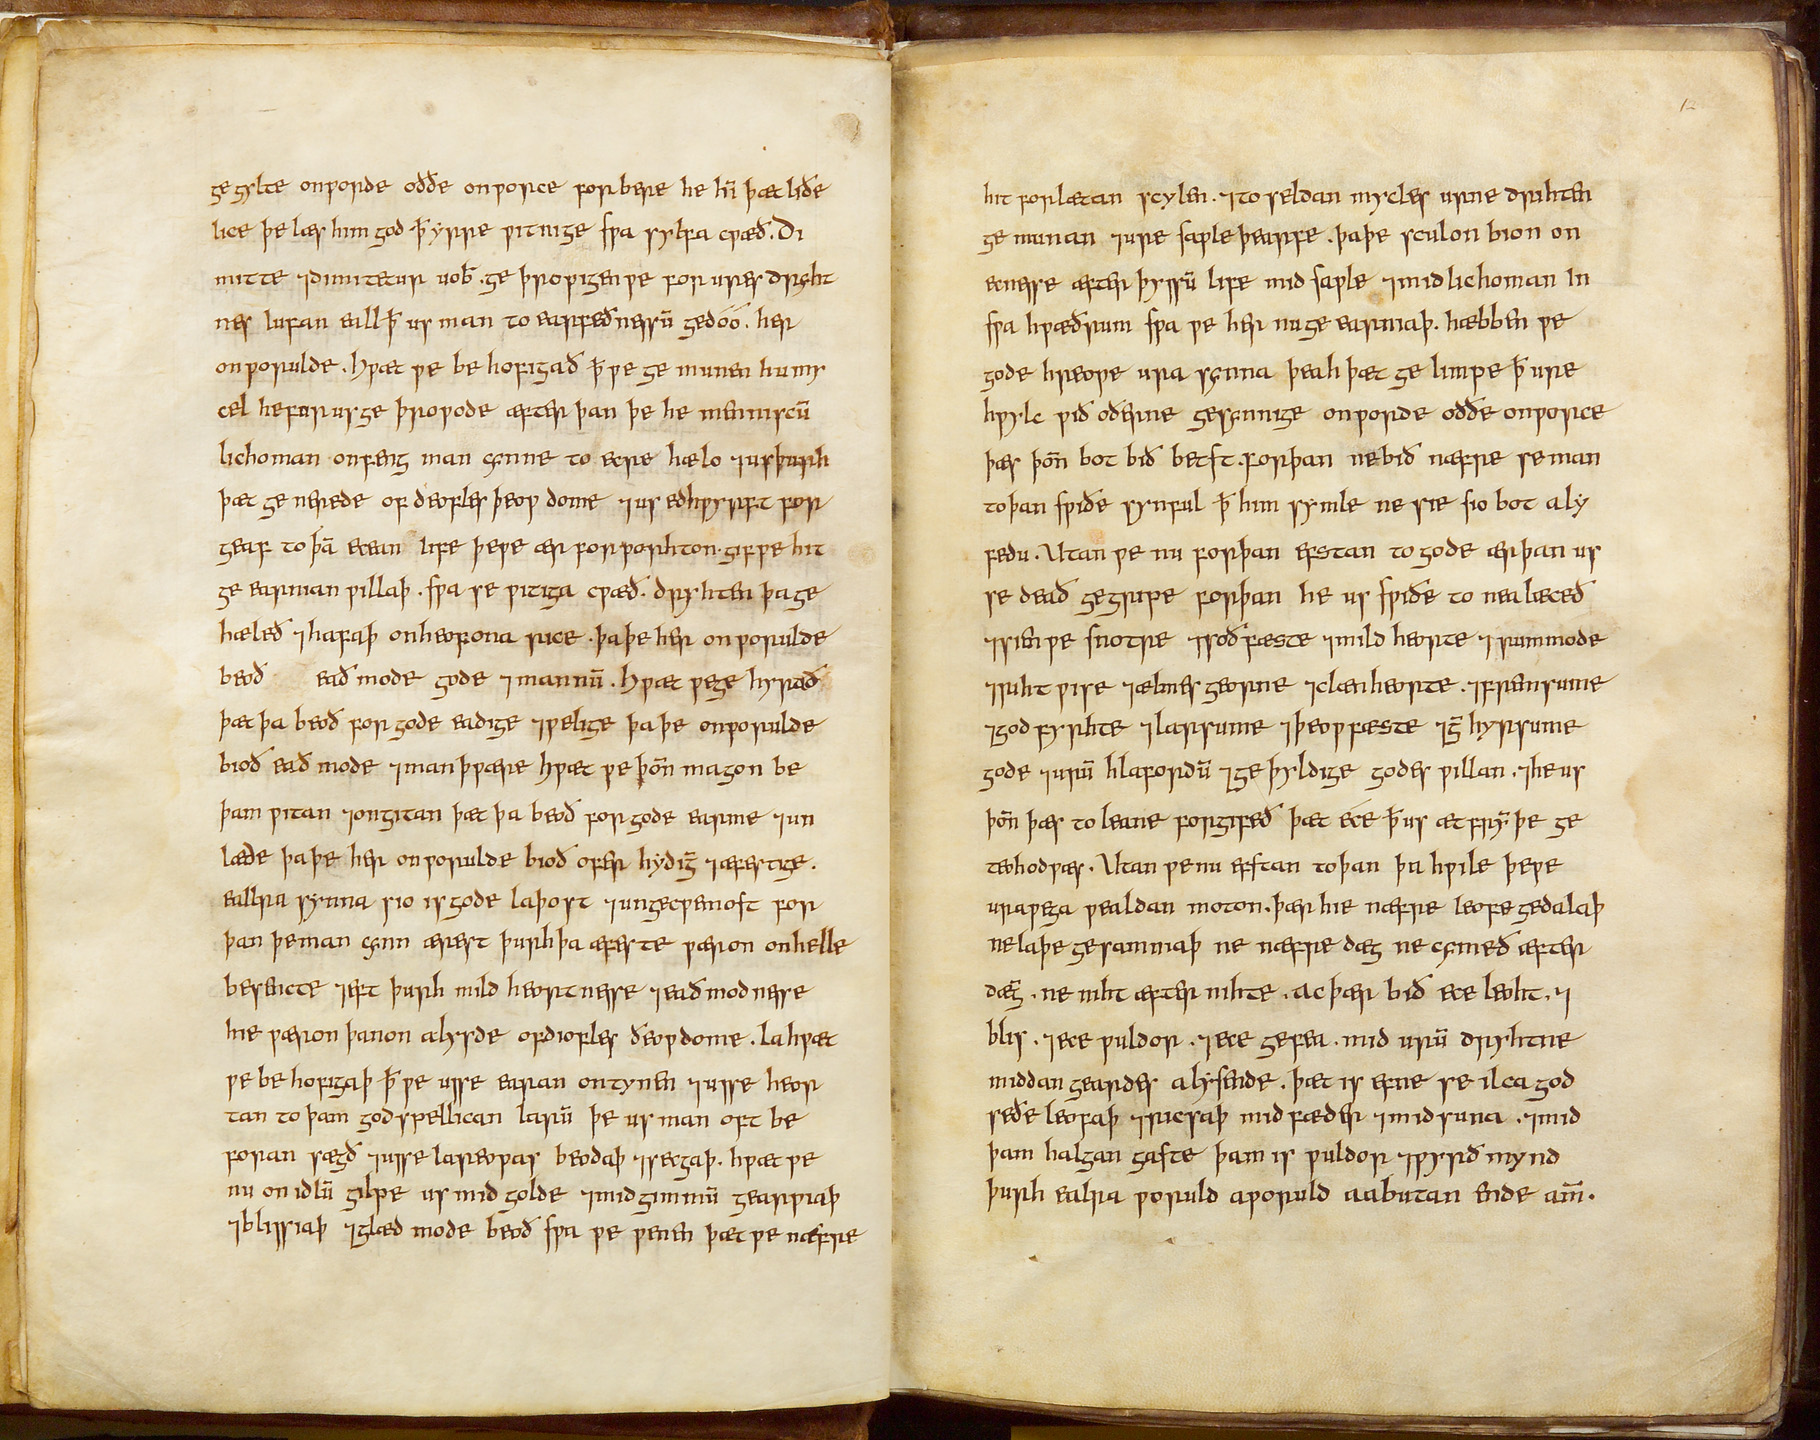 ge gylte onƿorde oððe onƿorce forbere he hī þæt liðe
lice þe læs him god ꝥ yrre ƿitnige sƿa sylfa cƿæð. Di
mitte ⁊dimitetur uob̄. ge þroƿigen ƿe for ures dryht
nes lufan eall ꝥ us man to earfeðnessū gedóó. her
onƿorulde. Hƿæt ƿe be hofigað ꝥ ƿe ge munen hu my
cel he for us ge þroƿode æfter þan þe he menniscū
lichoman onfeng man cynne to ecre hælo ⁊us þurh
þæt ge nerede of deofles þeoƿ dome ⁊us edhƿyrft for
geaf to þā ecean life þe ƿe ær forƿorhton. gif ƿe hit
ge earnian ƿillaþ. sƿa se ƿitiga cƿæð. dryhten þa ge
hæleð ⁊hafaþ onheofona rice. þa þe her on ƿorulde
beoð eað mode gode ⁊mannū. Hƿæt ƿe ge hyrað
þæt þa beoð for gode eadige ⁊ƿelige þa þe onƿorulde
bioð eað mode ⁊manþƿære hƿæt ƿe þoñ magon be
þam ƿitan ⁊ongitan þæt þa beoð for gode earme ⁊un
læde þa þe her onƿorulde bioð ofer hydiḡ ⁊æfestige.
eallra synna sio is gode laþost ⁊ungecƿemost for
þan þe man cynn ærest þurh þa æfeste ƿæron onhelle
besencte ⁊eft þurh mild heortnesse ⁊eað modnesse
hie ƿæron þanon alysde ofdiofles ðeoƿdome. la hƿæt
ƿe be hofigaþ ꝥ ƿe usse earan ontynen ⁊usse heor
tan to þam godspellican larū þe us man oft be
foran sægð ⁊usse lareoƿas beodaþ ⁊secgaþ. hƿæt ƿe
nu on idlū gilpe us mid golde ⁊mid gimmū gearƿiaþ
⁊blissiaþ ⁊glæd mode beoð sƿa ƿe ƿenen þæt ƿe næfre
12
hit forlætan scylen. ⁊to seldan mycles urne drihten
ge munan ⁊ure saƿle þearfe. þa þe sculon bion on
ecnesse æfter þyssū life mid saƿle ⁊mid lichoman In
sƿa hƿæðrum sƿa ƿe her nu ge earniaþ. hæbben ƿe
gode hreoƿe ura synna þeah þæt ge limpe ꝥ ure
hƿylc ƿið oðerne gesynnige onƿorde oððe onƿorce
þæs þoñ bot bið betst. forþan ne bið næfre se man
to þan sƿiðe synful ꝥ him symle ne sie sio bot aly
fedu. Utan ƿe nu forþan efstan to gode ær þan us
se deað gegripe forþan he us sƿiðe to nealæceð
⁊sien ƿe snotre ⁊soðfæste ⁊mild heorte ⁊rummode
⁊riht ƿise ⁊ælmes georne ⁊clænheorte. ⁊fremsume
⁊god fyrhte ⁊larsume ⁊þeoƿfæste ⁊ḡ hyrsume
gode ⁊urū hlafordū ⁊ge þyldige godes ƿillan. ⁊he us
þoñ þæs to leane forgifeð þæt éce ꝥ us æt frȳ þe ge
teohod ƿæs. Utan ƿe nu efstan to þan þa hƿile þe ƿe
ura ƿega ƿealdan moton. þær hie næfre leofe gedalaþ
ne laþe ge samniaþ ne næfre dæg ne cymeð æfter
dæḡ. ne niht æfter nihte. Ac þær bið ece leoht. ⁊
blis. ⁊ece ƿuldor. ⁊ece gefea. mid urū dryhtne
middan geardes alysende. þæt is efne se ilca god
se ðe leofaþ ⁊ricsaþ mid fæder ⁊mid suna. ⁊mid
þam halgan gaste þam is ƿuldor ⁊ƿyrðmynd
þurh ealra ƿoruld aƿoruld aabutan ende am̄.